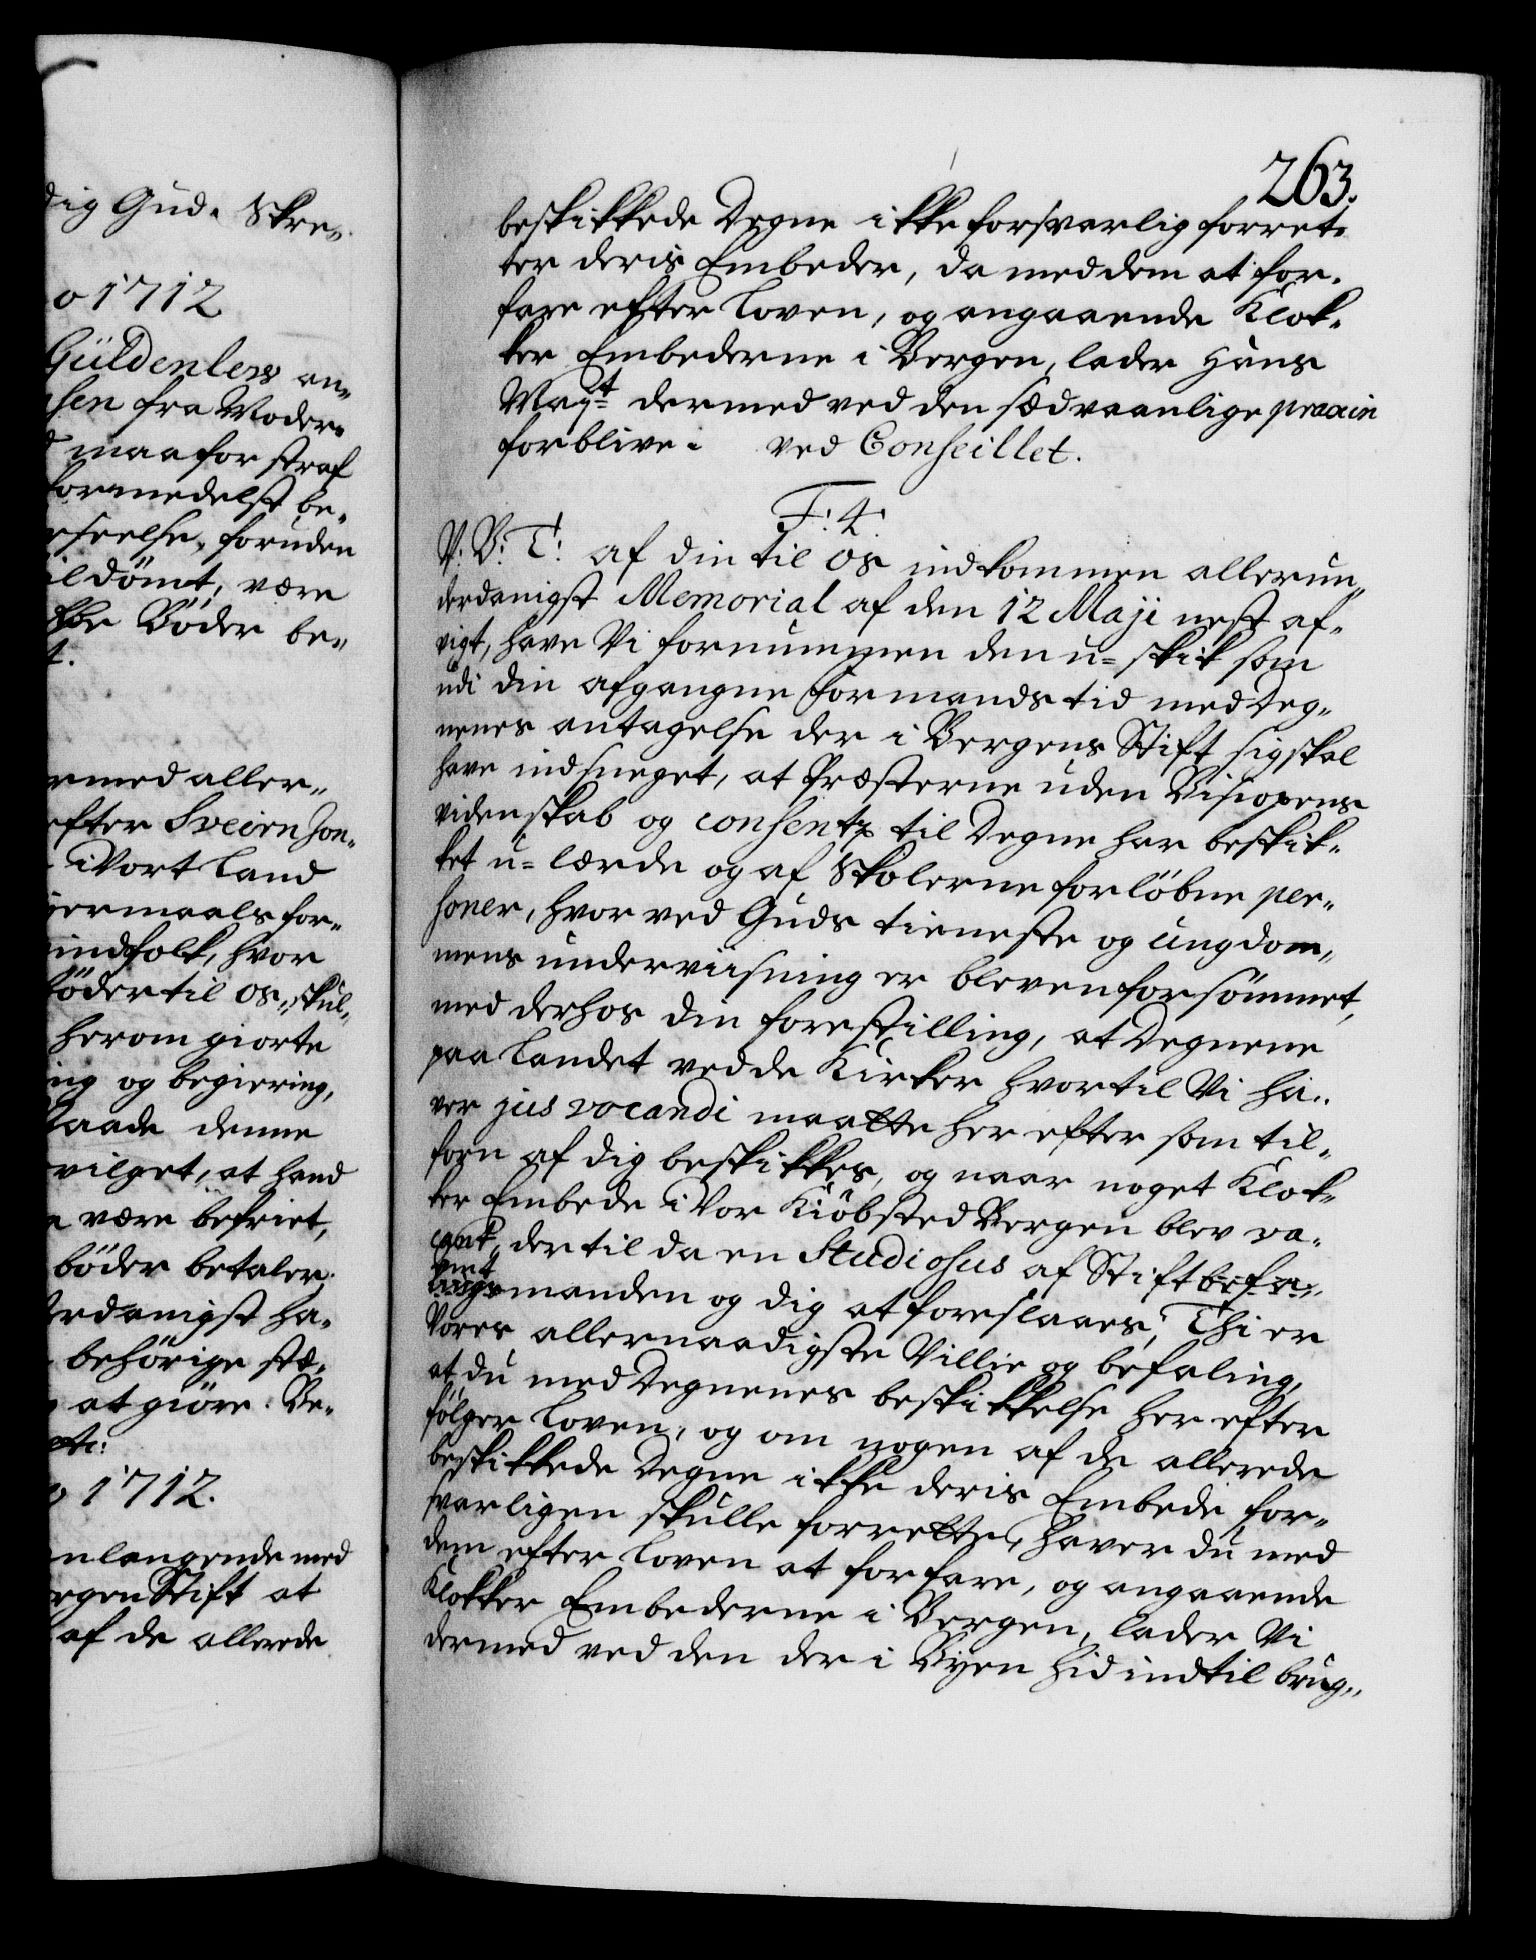 dig Gud. Skre„
o 1712
Güldenlew an„
sen fra Moder„
maa for straf
formedelst be„
rseelse, foruden
il dömt, være
Bøder be„
t.
rmed aller„
efter Sveirn Jon„
i Vort Land
iermaals for„
indfolk, hvor
bøder til os, skul„
herom giorte
ing og begiering,
saade denne
vilget, at hand
være befriet,
böder betaler.
derdanigst ha„
behörige stæ„
at giöre. Be„
1712.
nlangende med
rgen Stift at
af de allerede
263.
beskikkede Degne ikke forsvarlig forret„
ter deris Embeder, da med dem at for„
fare efter Loven, og angaaende Klok„
ker Embederne i Bergen, lader Hans
Mayt dermed ved den sædvaanlige praxin
forblive. ved Conseillet.
F: 4.
V. B: T: af din til os indkommen allerun„
derdanigst Memorial af den 12 Maji nest af„
vigt, have Vi fornummen den u-skik som
udi din afgangne Formands tid med Deg„
nenes antagelse der i Bergens Stift sig skal
have indsneget, at Præsterne uden Bisopens
videnskab og consents til Degne har beskik„
ket u-lærde og af Skolerne forlöbne per„
soner, hvorved Guds tieneste og ungdom„
mens underviisning er bleven forsömmet,
med derhos din forestilling, at Degnene
paa Landet ved de Kirker hvortil Vi ha„
ver jus vocandi maatte her efter som til„
forn af dig beskikkes, og naar noget Klok„
ker Embede i Vor Kiöbsted Bergen blev va„
cant, dertil da en Studiosus af Stiftbefa„
lingsmanden og dig at foreslaaes; Thi er
Vores allernaadigste Villie og befaling,
at du med Degnenes beskikkelse her efter
fölger Loven, og om nogen af de allerede
beskikkede Degne ikke deris Embede for„
svarligen skulle forrette, haver du med
dem efter Loven at forfare, og angaaende
Klokker Embederne i Bergen, lader Vi
dermed ved den der i Byen hid indtil brug„